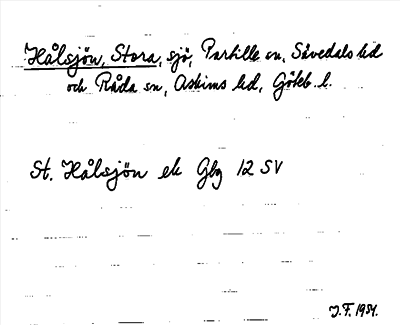 Hålsjön, Stora, sjö, Partille sn, Sävedals hd
och Råda sn, Askims hd, Göteb. l.
St. Hålsjön ek Gbg 12 SV
J.F. 1954.